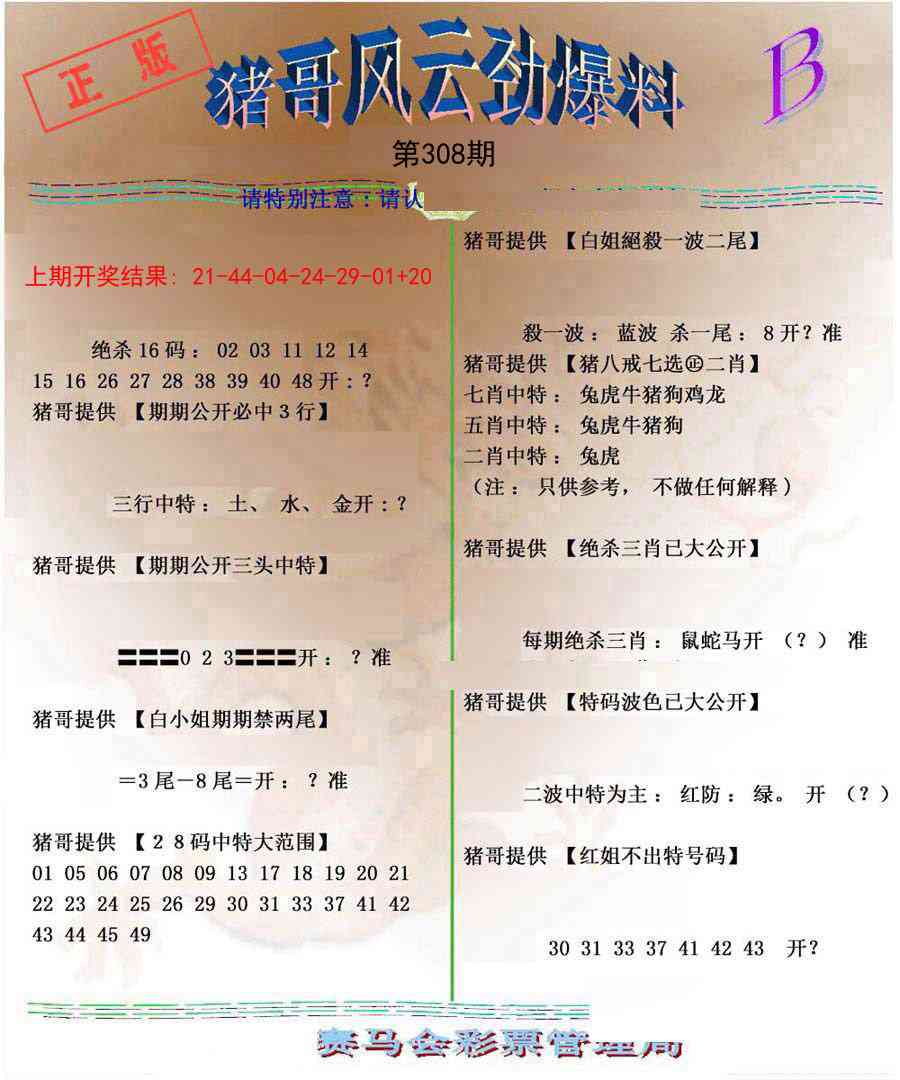 正版
猪哥风云劲爆料
B
第308期
请特别注意：请认
上期开奖结果: 21-44-04-24-29-01+20
绝杀16码： 02 03 11 12 14
15 16 26 27 28 38 39 40 48开：？
猪哥提供 【期期公开必中3行】
三行中特： 土、 水、 金开：？
猪哥提供 【期期公开三头中特】
〓〓〓0 2 3〓〓〓开： ？准
猪哥提供 【白小姐期期禁两尾】
＝3尾－8尾＝开： ？准
猪哥提供 【２８码中特大范围】
01 05 06 07 08 09 13 17 18 19 20 21
22 23 24 25 26 29 30 31 33 37 41 42
43 44 45 49
猪哥提供 【白姐絕殺一波二尾】
殺一波： 蓝波 杀一尾： 8开？准
猪哥提供 【猪八戒七选㊣二肖】
七肖中特： 兔虎牛猪狗鸡龙
五肖中特： 兔虎牛猪狗
二肖中特： 兔虎
（注： 只供参考， 不做任何解释）
猪哥提供 【绝杀三肖已大公开】
每期绝杀三肖： 鼠蛇马开 （？） 准
猪哥提供 【特码波色已大公开】
二波中特为主： 红防： 绿。 开 （？）
猪哥提供 【红姐不出特号码】
30 31 33 37 41 42 43 开？
赛马会彩票管理局